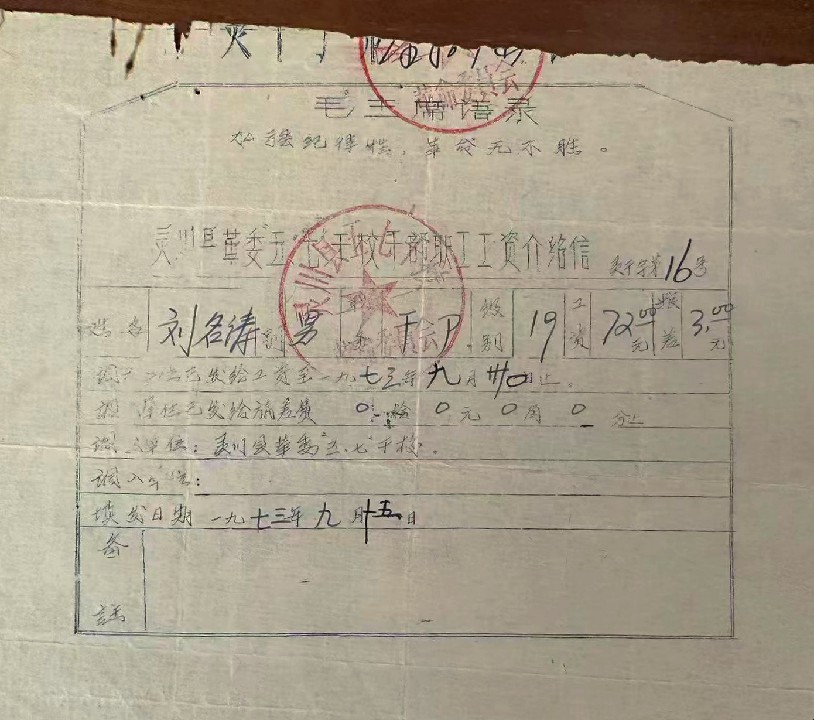 革命委员会
毛主席语录
加强纪律性，革命无不胜。
灵川县革委五·七干校干部职工工资介绍信 灵干字第16号
姓名 刘名涛 别 男 干部 级别 19 工资 72.00元 粮差 3.00元
已发给工资至一九七三年九月卅日止.
单位已发给旅差费 0 0元 0角 0分
单位：灵川县革委"五.七"干校.
调入单位：
填发日期 一九七三年九月十五日
备註